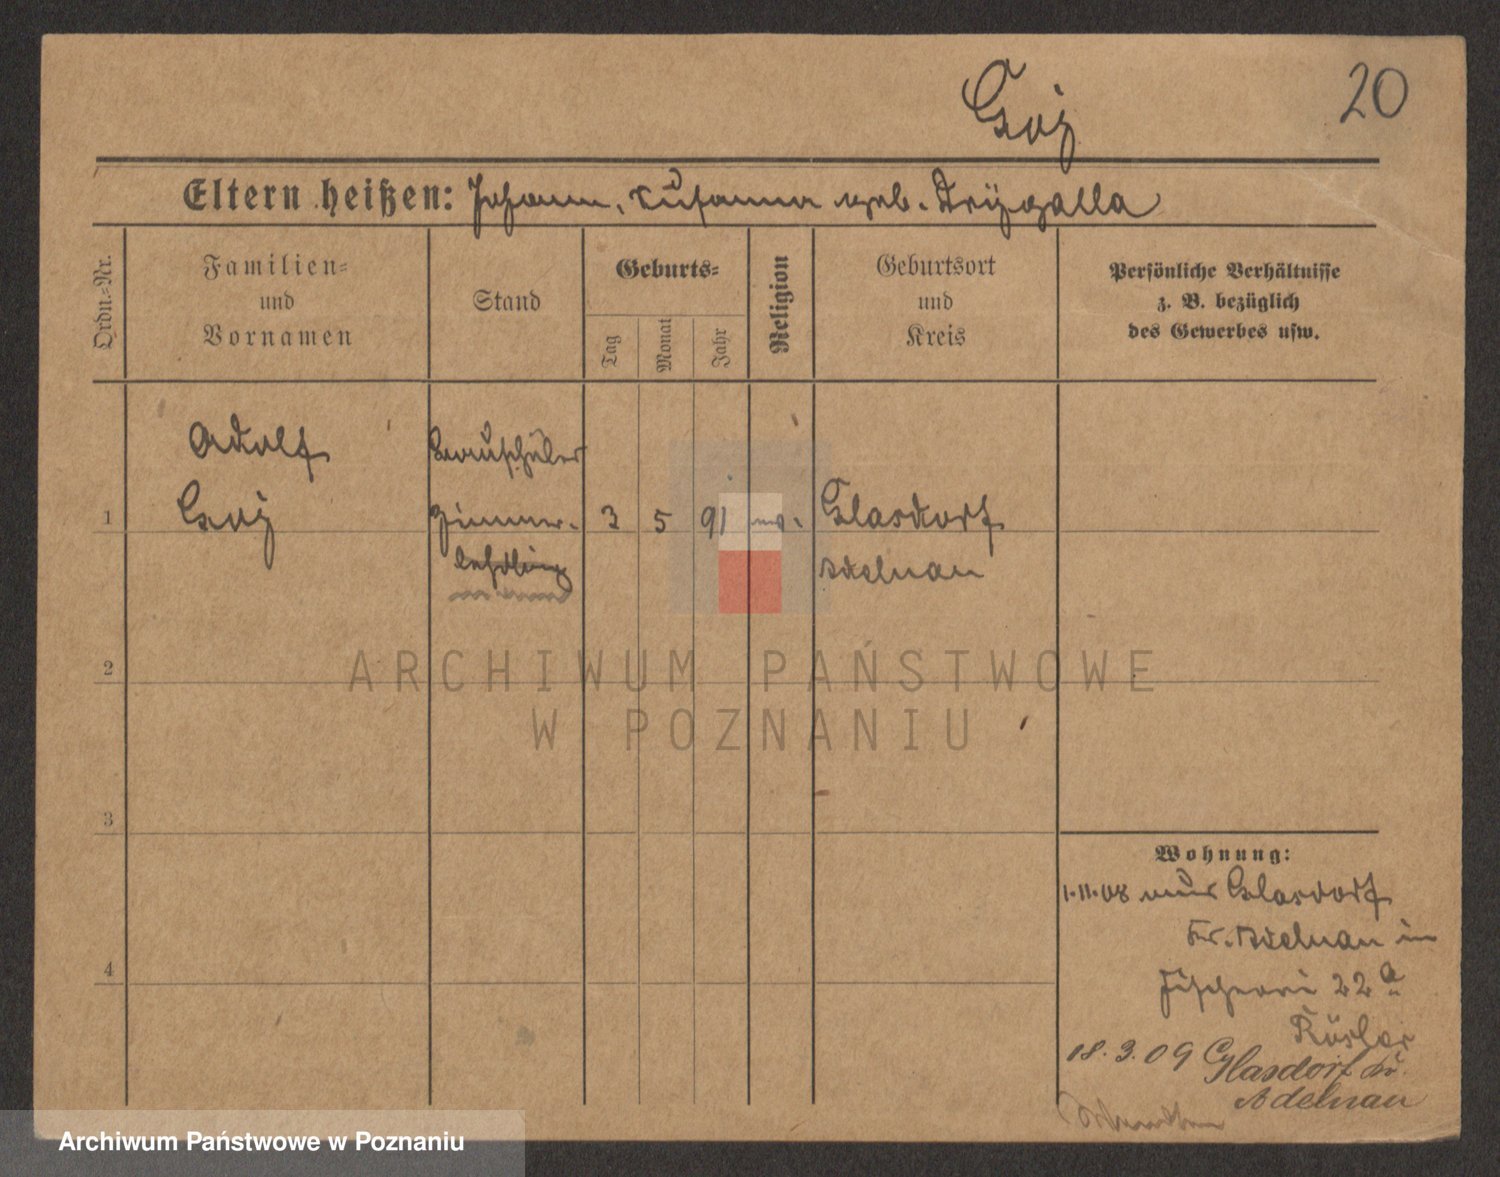 Goj
20
Eltern heißen: Johann, Susanna geb. Drÿgalla
Ordn.-Nr.
Familien-
und
Vornamen
Stand
Geburts-
Tag
Monat
Jahr
Religion
Geburtsort
und
Kreis
Persönliche Verhältnisse
z. B. bezüglich
des Gewerbes usw.
Adolf
Bauschüler
1
Goj
Zimmer-
3
5
91
Glasdorf
Adelnau
2
ARCHIWUM PAŃSTWOWE
W POZNANIU
3
Wohnung:
1.11.08 aus Glasdorf
Kr. Adelnau in
4
Fischerei 22a
Rösler
18.3.09 Glasdorf Kr.
Adelnau
Archiwum Państwowe w Poznaniu